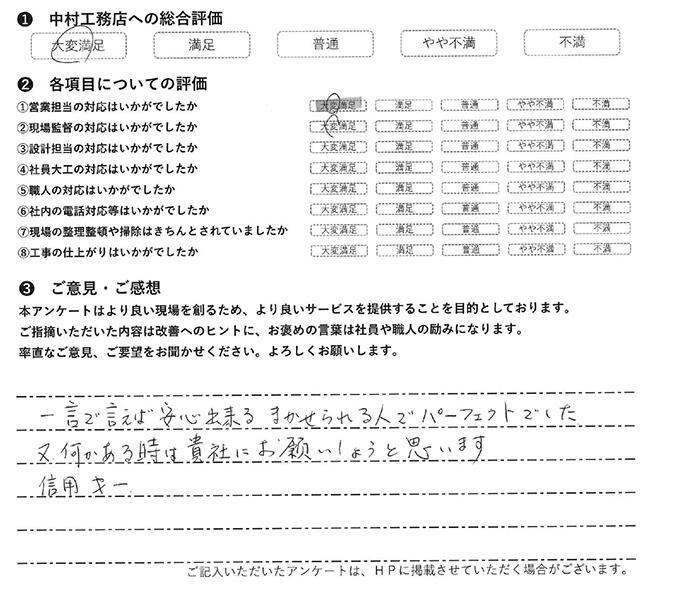 ❶ 中村工務店への総合評価
大変満足 満足 普通 やや不満 不満
❷ 各項目についての評価
①営業担当の対応はいかがでしたか 大変満足 満足 普通 やや不満 不満
②現場監督の対応はいかがでしたか 大変満足 満足 普通 やや不満 不満
③設計担当の対応はいかがでしたか 大変満足 満足 普通 やや不満 不満
④社員大工の対応はいかがでしたか 大変満足 満足 普通 やや不満 不満
⑤職人の対応はいかがでしたか 大変満足 満足 普通 やや不満 不満
⑥社内の電話対応等はいかがでしたか 大変満足 満足 普通 やや不満 不満
⑦現場の整理整頓や掃除はきちんとされていましたか 大変満足 満足 普通 やや不満 不満
⑧工事の仕上がりはいかがでしたか 大変満足 満足 普通 やや不満 不満
❸ ご意見・ご感想
本アンケートはより良い現場を創るため、より良いサービスを提供することを目的としております。
ご指摘いただいた内容は改善へのヒントに、お褒めの言葉は社員や職人の励みになります。
率直なご意見、ご要望をお聞かせください。よろしくお願いします。
一言で言えば安心出来る まかせられる人でパーフェクトでした
又何かある時は貴社にお願いしようと思います
信用第一
ご記入いただいたアンケートは、HPに掲載させていただく場合がございます。